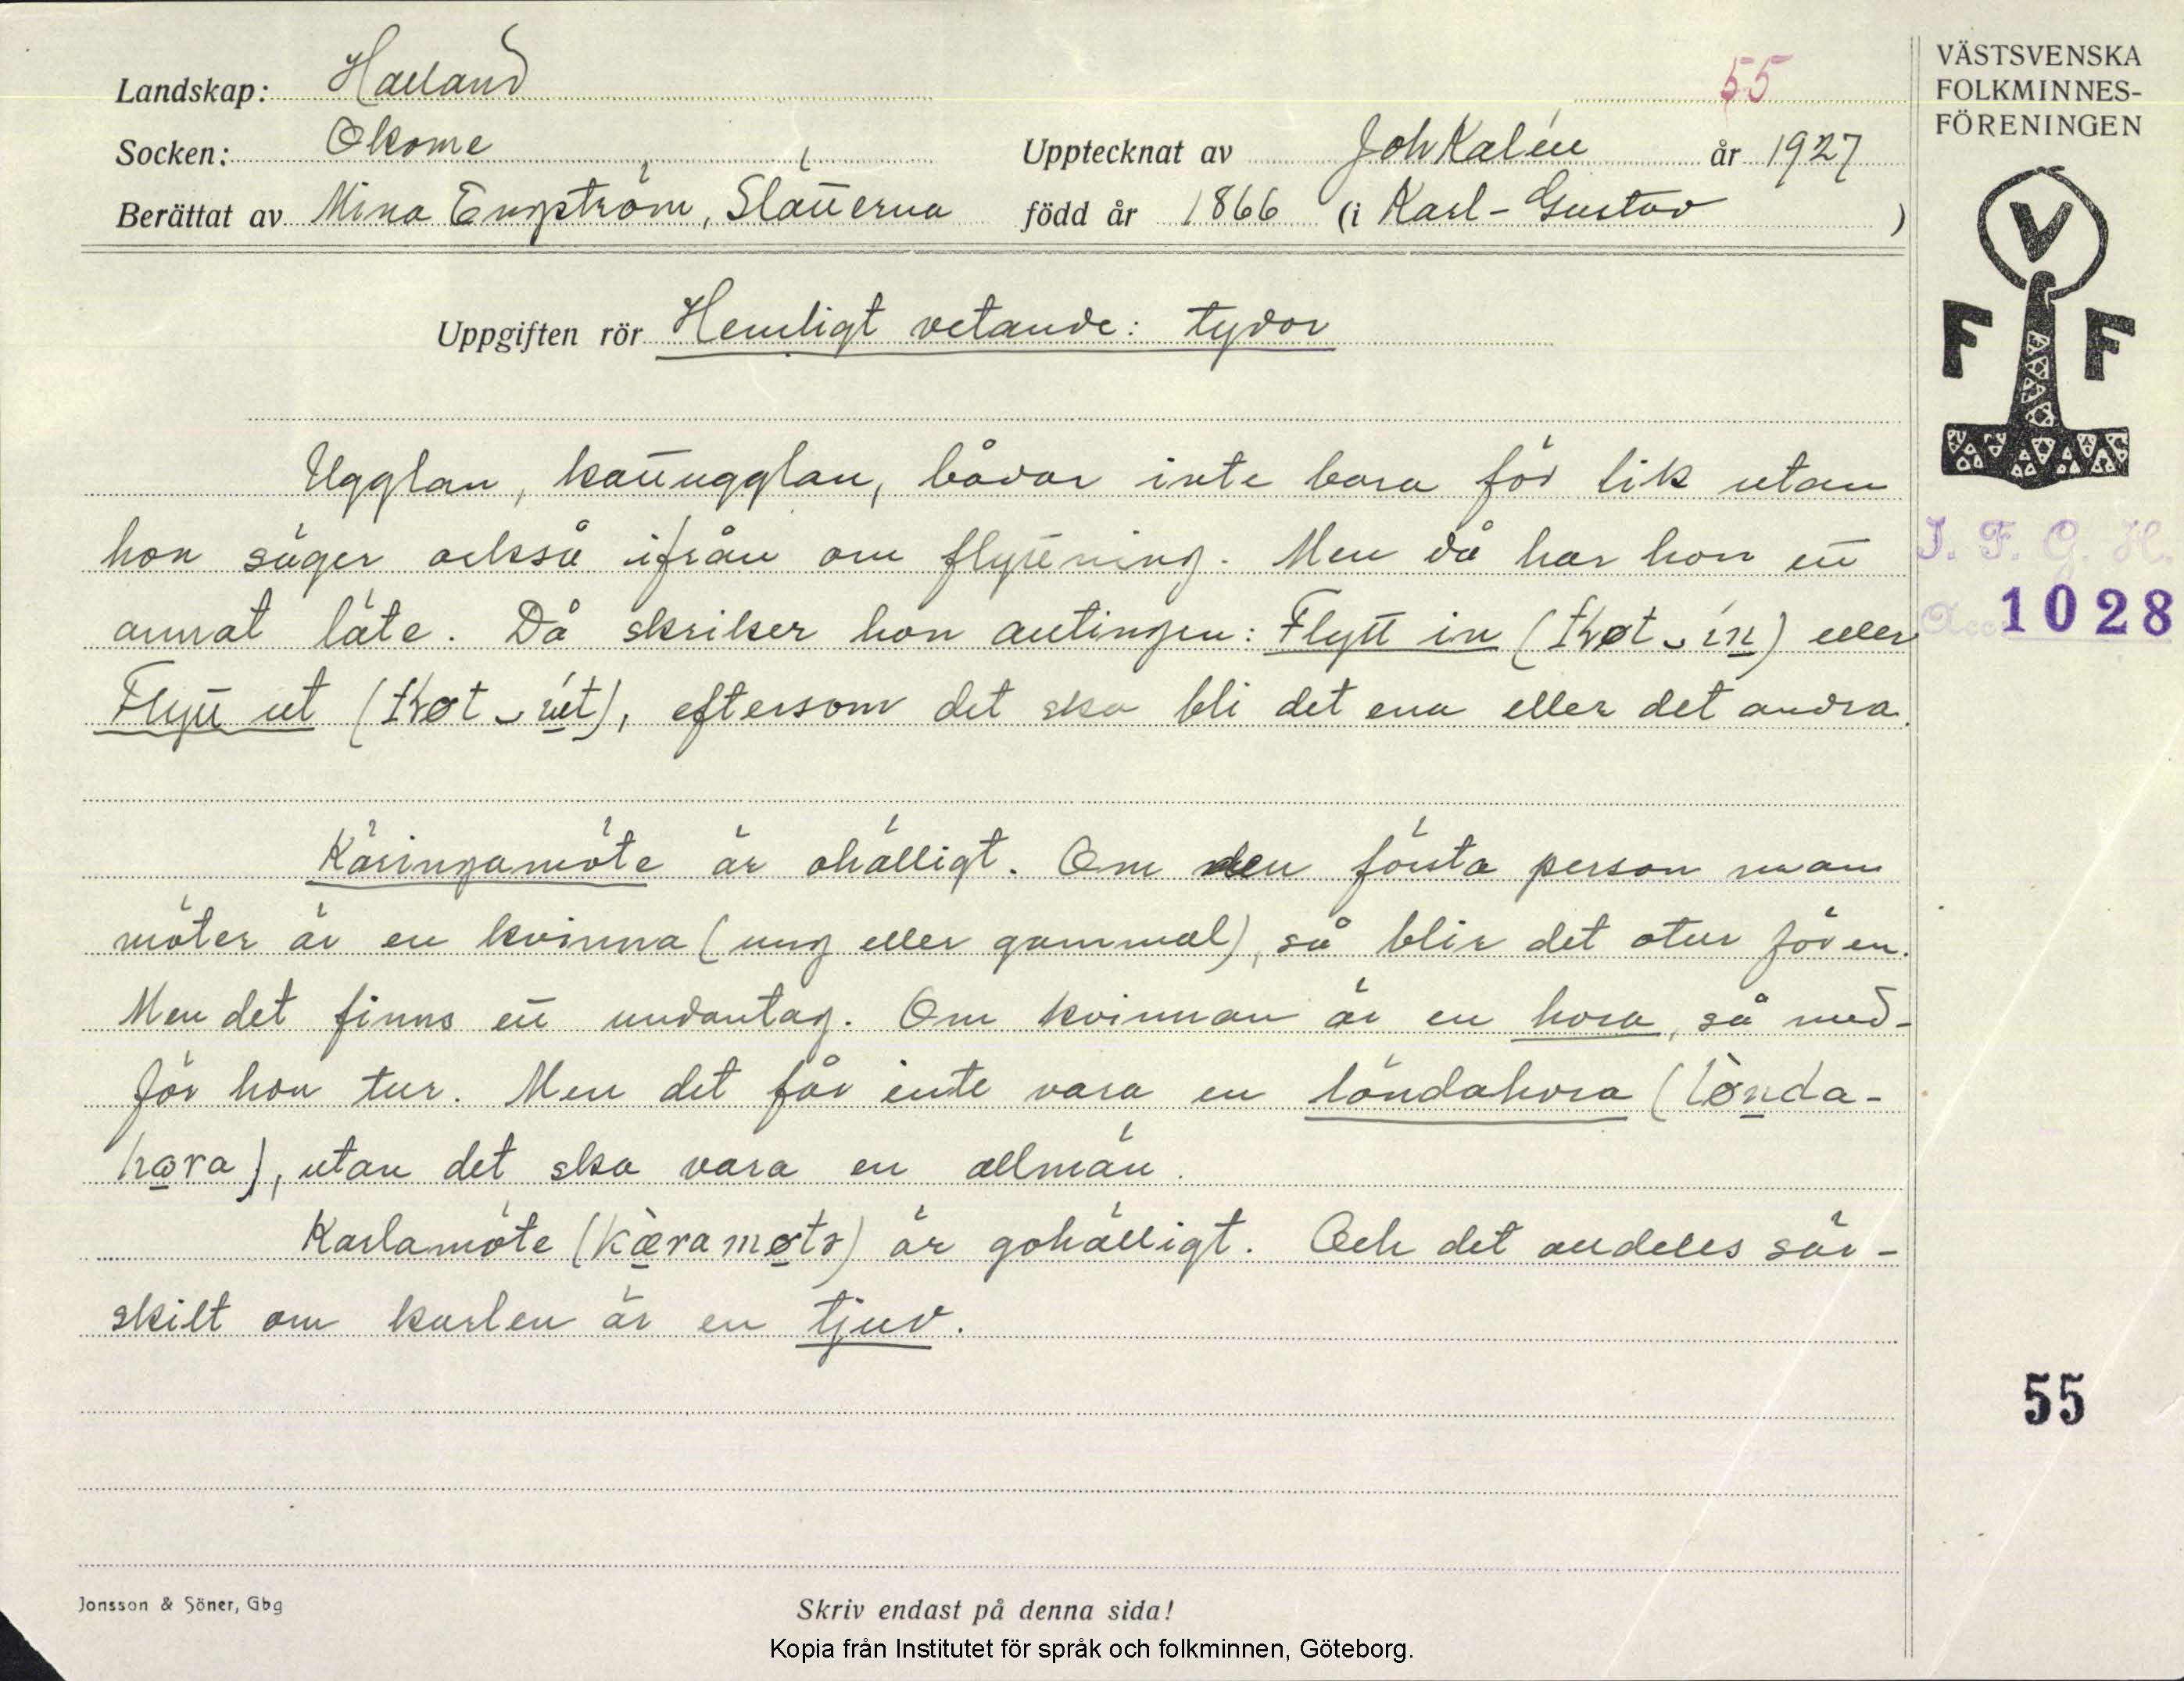 Landskap: Halland
55
Socken: Okome
Upptecknat av Joh Kalén år 1927
Berättat av Mina Engström, Slätterna född år 1866 (i Karl-Gustav)
VÄSTSVENSKA
FOLKMINNES-
FÖRENINGEN
V
F F
Uppgiften rör Hemligt vetande: tydor
Ugglan, kattugglan, bådar inte bara för lik utan
hon säger också ifrån om flyttning. Men då har hon ett
annat läte. Då skriker hon antingen: Flytt in ( ) eller
Flytt ut ( ), eftersom det ska bli det ena eller det andra.
I. F. G. H.
Acc 1028
Käringamöte är ohälligt. Om den första person man
möter är en kvinna (ung eller gammal), så blir det otur för en.
Men det finns ett undantag. Om kvinnan är en hora, så med-
för hon tur. Men det får inte vara en löndahora (lònda-
hora), utan det ska vara en allmän.
Karlamöte (kæ̀ramøtə) är gohälligt. Och det alldeles sär-
skilt om karlen är en tjuv.
55
Jonsson & Söner, Gbg
Skriv endast på denna sida!
Kopia från Institutet för språk och folkminnen, Göteborg.